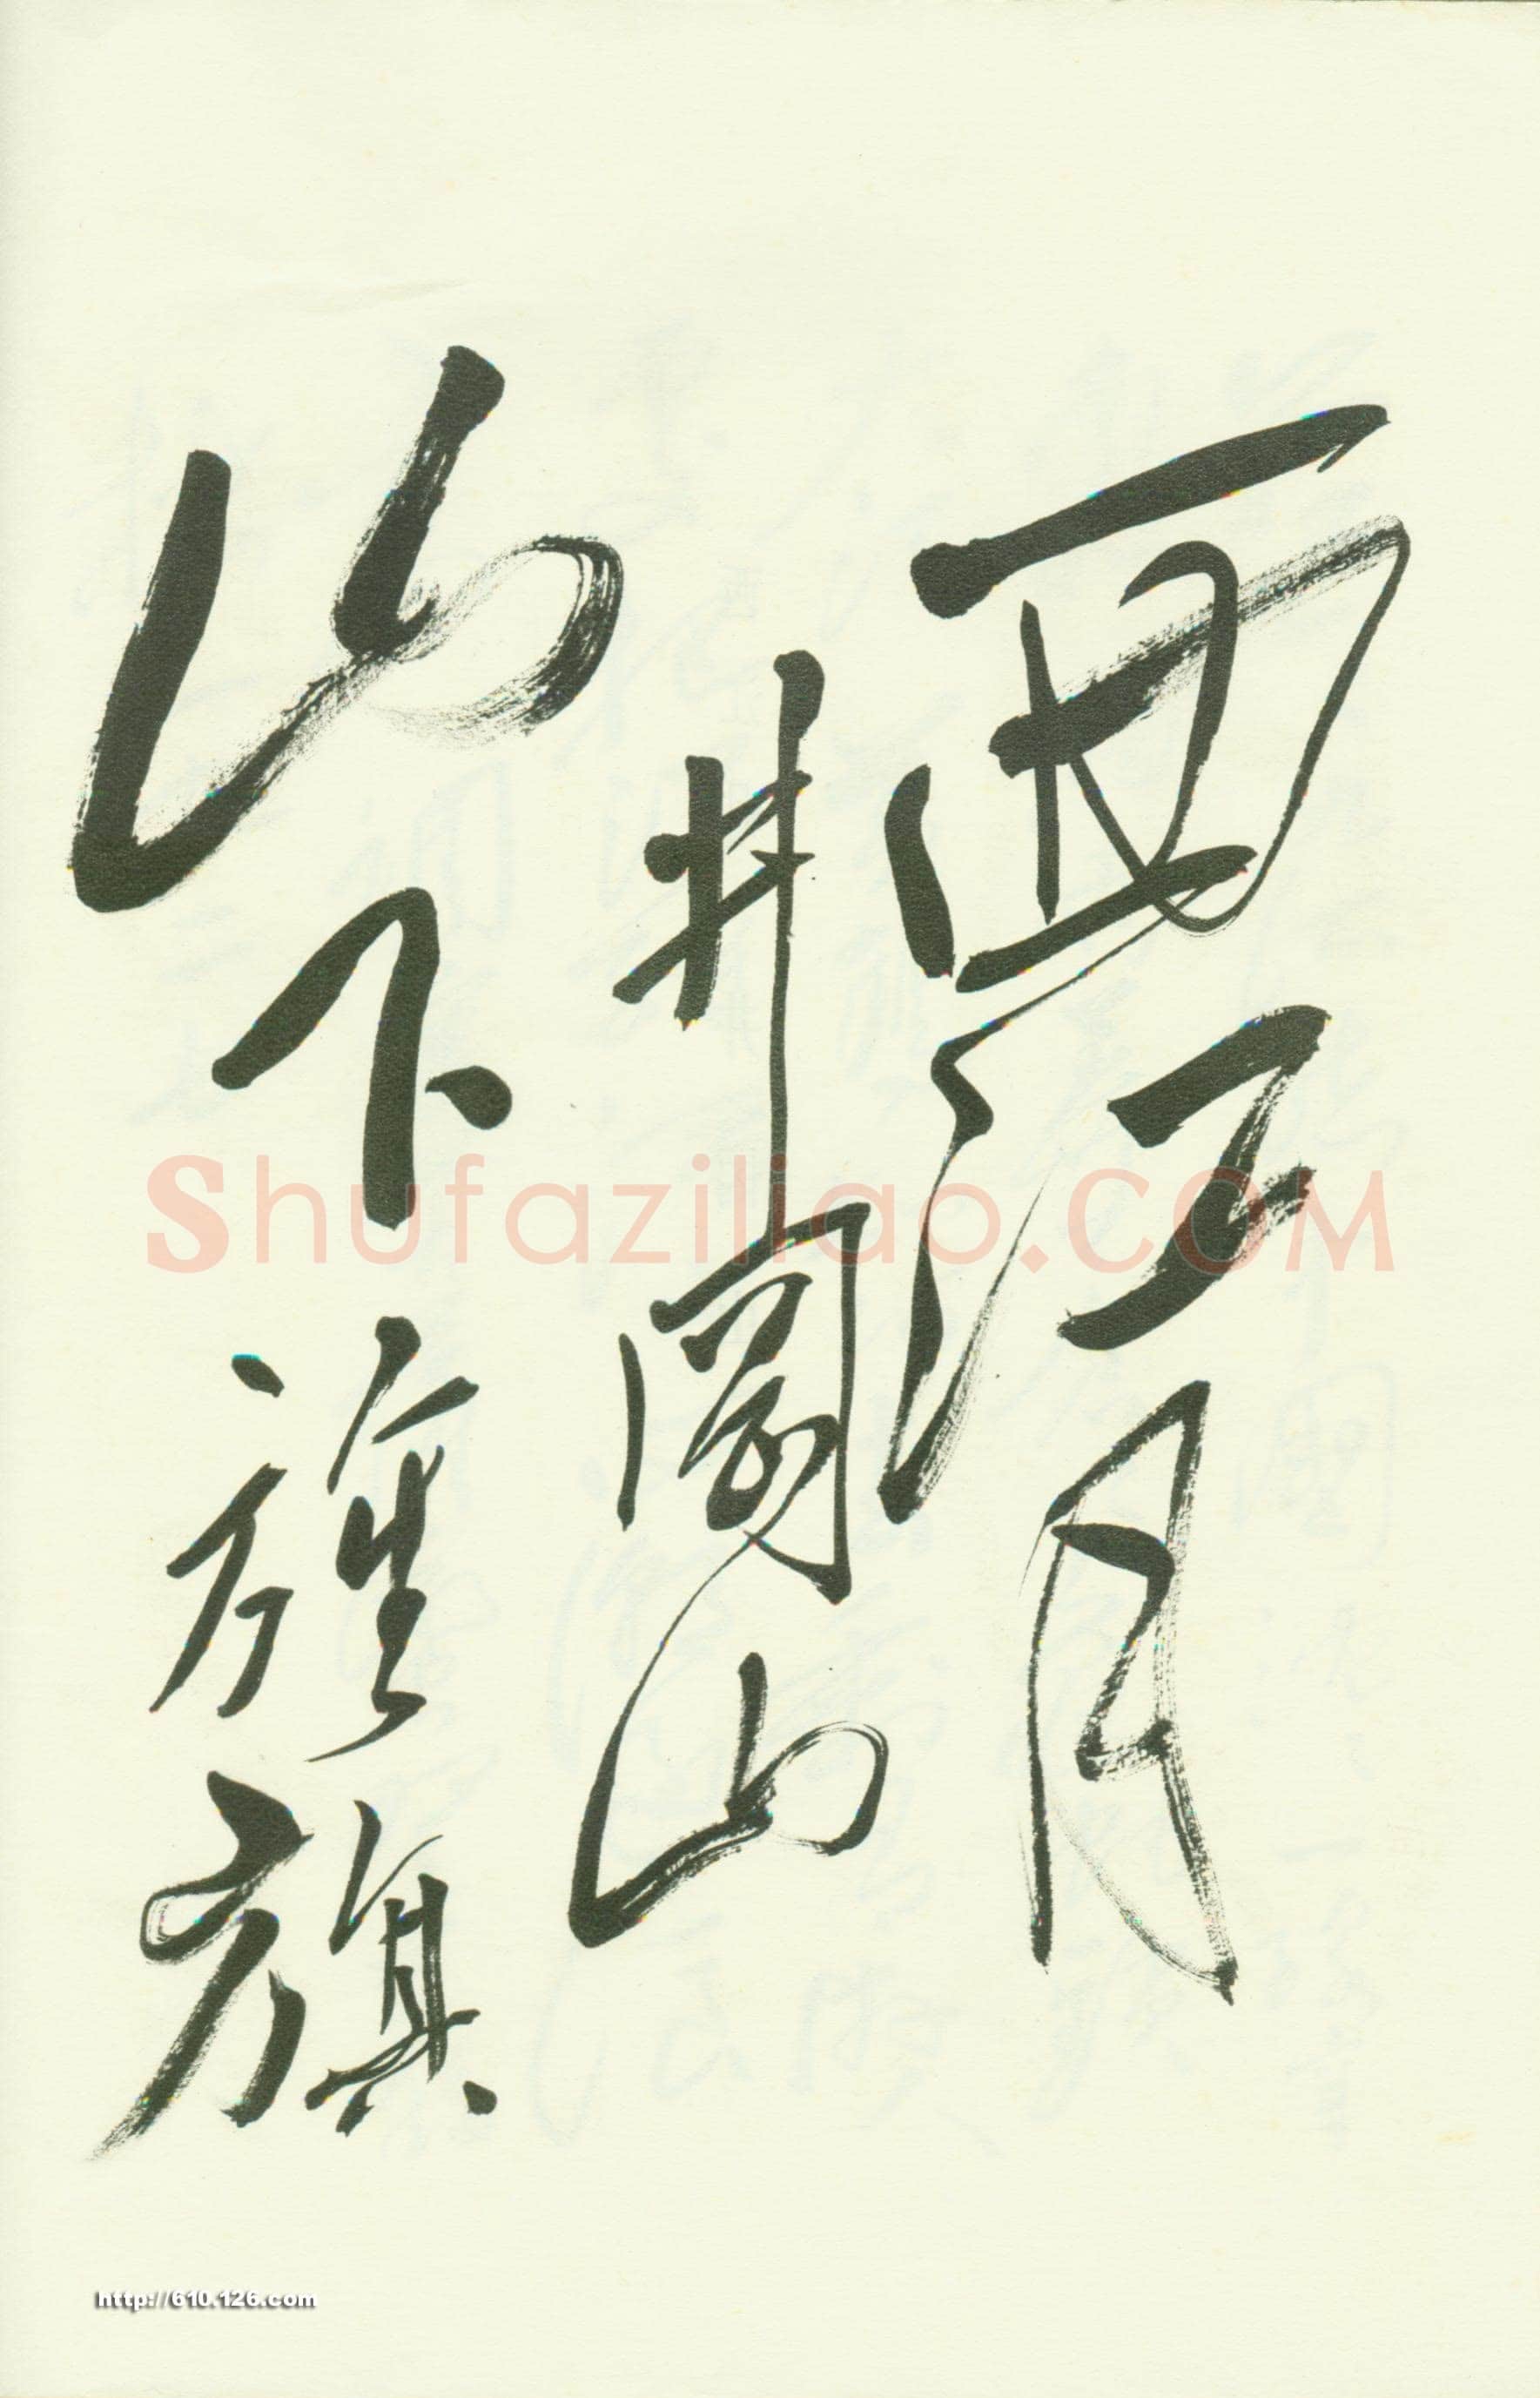 西江月
井岡山
山下旌旗
Shufaziliao.COM
http://610.126.com